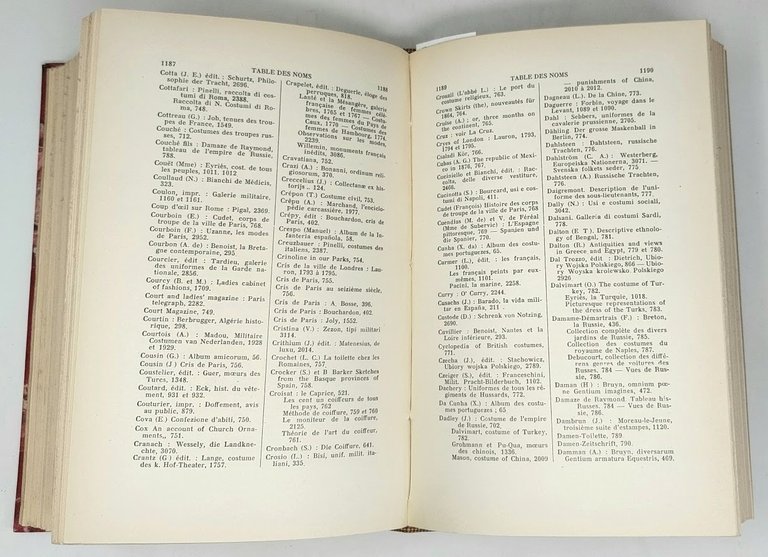 1187
TABLE DES NOMS
1188
Cotta (J. E.) édit. : Schurtz, Philo-
sophie der Tracht, 2696.
Cottafari : Pinelli, raccolta di cos-
tumi di Roma, 2388.
Raccolta di N. Costumi di Ro-
ma, 748.
Cottreau (G.) : Job, tenues des trou-
pes de France, 1549.
Couché : Costumes des troupes rus-
ses, 712.
Couché fils : Damaze de Raymond,
tableau de l'empire de Russie,
788.
Couët (Mme) : Eyriés, cost. de tous
les peuples, 1011. 1012
Coullaud (N.) : Bianchi de Médicis,
323.
Coulon, impr. : Galerie militaire,
1160 et 1161.
Coup d'œil sur Rome : Pigal, 2369.
Courboin (E.) : Cudet, corps de
troupe de la ville de Paris, 768.
Courboin (F.) : Uzanne, les modes
de Paris, 2952.
Courbon (A. de) : Benoist, la Breta-
gne contemporaine, 295.
Courcier, édit : Tardieu, galerie
des uniformes de la Garde na-
tionale, 2856.
Courcy (B. et M.) : Ladies cabinet
of fashions, 1709.
Court and ladies' magazine : Paris
telegraph, 2282.
Court Magazine, 749.
Courtin : Berbrugger, Algérie histo-
rique, 298.
Courtois (A.) : Madou, Militaire
Costumen van Nederlanden, 1928
et 1929.
Cousin (G.) : Album amicorum, 56.
Cousin (J) Cris de Paris, 756.
Coustelier, édit. : Guer, mœurs des
Turcs, 1348.
Coutard, édit. : Eck, hist. du vête-
ment, 931 et 932.
Couturier, impr. : Doffement, avis
au public, 879.
Cova (E.) Confezione d'abiti, 750.
Cox An account of Church Orna-
ments,, 751.
Cranach : Wessely, die Landkne-
chte, 3070.
Crantz (G) édit. : Lange, costume
des k. Hof-Theater, 1757.
Crapelet, édit. : Deguerle, éloge des
perruques, 818.
Lanté et la Mésangère, galerie
française de femmes célè-
bres, 1765 et 1767 — Costu-
mes des femmes du Pays de
Caux, 1770 — Costumes des
femmes de Hambourg, 1774.
Observations sur les modes,
2239.
Willemin, monuments français
inédits, 3086.
Cravatiana, 752.
Crazi (A.) : Bonanni, ordinum reli-
giosorum, 370.
Creccelius (J.) : Collectanæ ex his-
torijs .. 124.
Crépon (T.) Costume civil, 753.
Crépu (A.) : Marchand, l'enciclo-
pédie carcassienne, 1977.
Crépy, édit : Bouchardon, cris de
Paris, 402.
Crespo (Manuel) : Album de la In-
fanteria española, 58.
Creuzbauer : Pinelli, costumes des
italiens, 2387.
Crinoline in our Parks, 754.
Cris de la ville de Londres : Lau-
ron, 1793 à 1795.
Cris de Paris, 755.
Cris de Paris au seizième siècle,
756.
Cris de Paris : A. Bosse, 396.
Cris de Paris : Bouchardon, 402.
Cris de Paris : Joly, 1552.
Cristina (V.) : Zezon, tipi militari
3114.
Crithium (J.) édit. : Matenesius, de
luxu, 2014.
Crochet (L. C.) La toilette chez les
Romaines, 757.
Crocker (S.) et B Barker Sketches
from the Basque provinces of
Spain, 758.
Croisat : le Caprice, 521.
Les cent un coiffeurs de tous
les pays, 762
Méthode de coiffure, 759 et 760
Le moniteur de la coiffure.
2125.
Théorie de l'art du coiffeur.
761.
Cronbach (S.) : Die Coiffure, 641.
Crosio (L.) : Bisi, unif. milit. ita-
liani, 335.
1189
TABLE DES NOMS
1190
Crosnil (L'abbé L.) : Le port du
costume religieux, 763.
Crown Skirts (the), nouveautés für
1864, 764.
Cruise (A.) ; or, three months on
the continent, 765.
Crus : voir La Cruz.
Cryes of London : Lauron, 1793,
1794 et 1795.
Családi Kör, 766.
Cubas (A. G.) The republic of Mexi-
co in 1876, 767.
Cucinielle et Bianchi, édit. : Rac-
colta, delle diverse vestiture,
2466.
Cucinotta (S.) : Bourcard, usi e cos-
tumi di Napoli, 411.
Cudet (François) Histoire des corps
de troupe de la ville de Paris, 768
Cuendias (M de) et V. de Féréal
(Mme de Subervic) : L'Espagne
pittoresque, 769 — Spanien und
die Spanier, 770.
Cunha (X. da) : Album das costu-
mes portuguezes, 65.
Curmer (L.), édit. : les français,
1100.
Les français peints par eux-
mêmes, 1101.
Pacini, la marine, 2258.
Curry : O' Curry, 2244.
Cusachs (J.) : Barado, la vida mili-
tar en España, 211
Custode (D.) : Schrenk von Notzing,
2690.
Cuvillier : Benoist, Nantes et la
Loire inférieure, 293.
Cyclopedia of British costumes,
771.
Czecha (J.), édit. : Stachowicz,
Ubiory wojska Polskiego, 2789.
Czeiger (S.), édit. : Franceschini,
Milit. Pracht-Bilderbuch, 1102.
Dachery : Uniformes de tous les ré-
giments de Hussards, 772.
Da Cunha (X.) : Album das costu-
mes portuguezes : 65
Dadley (J.) : Costume de l'empire
de Russie, 702
Dalvimart, costume of Turkey,
782.
Grohmann et Pu-Qua, mœurs
des chinois, 1336.
Mason, costume of China, 2009
— punishments of China,
2010 à 2012.
Dagneau (L.). De la Chine, 773.
Daguerre : Forbin, voyage dans le
Levant, 1089 et 1090.
Dahl : Sebbers, uniformes de la
cavalerie prussienne, 2705.
Dähling Der grosse Maskenball in
Berlin, 774.
Dahlsteen : Dahtsteen, russische
Trachten, 776.
Dahlström (C. A.) : Westerberg,
Europeiska Nationener, 3071. —
Svenska folkets seder, 775
Dahtsteen (A ) Russische Trachten,
776.
Daigremont. Description de l'uni-
forme des sous-lieutenants, 777.
Dally (N.) : Usi e costumi sociali,
3042.
Dalsani. Galleria di costumi Sardi,
778.
Dalton (E. T ). Descriptive ethnolo-
gy of Bengal, 781.
Dalton (R.) Antiquities and views
in Greece and Egypt, 779 et 780.
Dal Trozzo, édit : Dietrich, Ubio-
ry Wojska Polskiego, 866 — Ubio-
ry Woyska krolewsko Polskiego
2926
Dalvimart (O.) The costume of Tur-
key, 782.
Eyriès, la Turquie, 1018.
Picturesque representations of
the dress of the Turks, 783.
Damame-Démartrais (F.) : Breton,
la Russie, 436.
Collection complète des divers
jardins de Russie, 785.
Collection des costumes du
royaume de Naples, 787.
Debucourt, collection des diffé-
rens genres de voitures des
Russes, 784 — Vues de Rus-
sie, 786.
Daman (H ) : Bruyn, omnium pœ-
ne Gentium imagines, 472.
Damaze de Raymond Tableau his-
Russes. 784 — Vues de Rus-
sie, 786.
Dambrun (J.) : Moreau-le-Jeune,
troisième suite d'estampes, 1120.
Damen-Toilette, 789.
Damen-Zeitschrift, 790.
Damman (A.) : Bruyn, diversarum
Gentium armatura Equestris, 469.